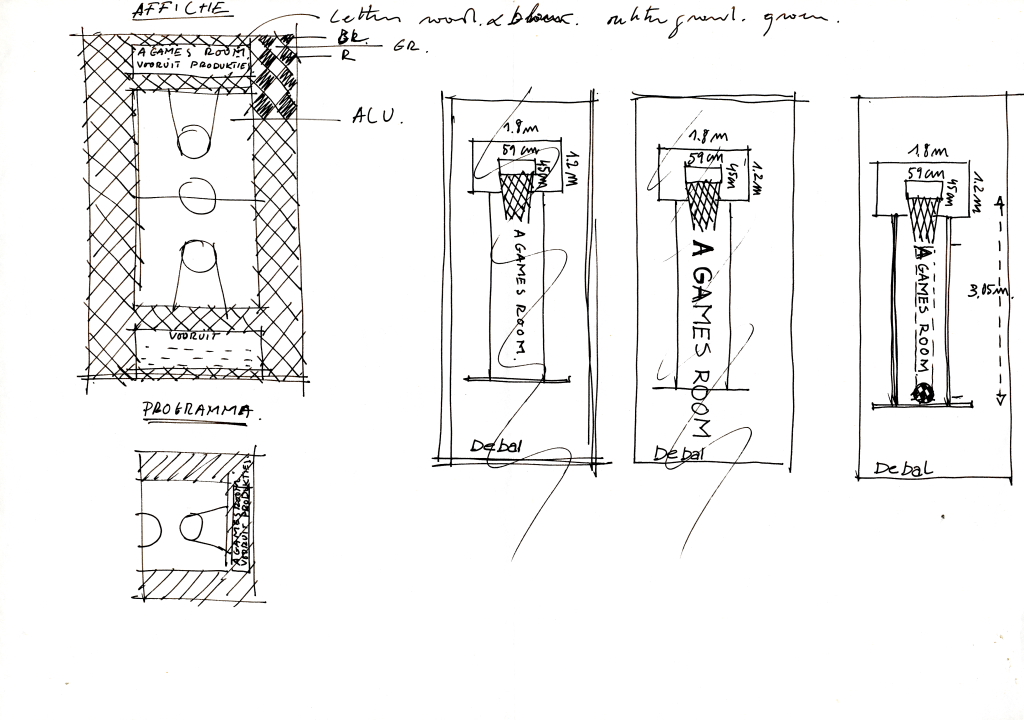 AFFICHE
Letters rood. &
BR.
GR.
R
A GAMES ROOM
VOORUIT PRODUKTIE
ALU.
VOORUIT
PROGRAMMA.
A GAMES ROOM
VOORUIT PRODUKTIES
1.8m
59cm
45cm
1.2m
A GAMES ROOM.
Debal
1.8m
59cm
45cm
1.2m
A GAMES ROOM
Debal
1.8m
59cm
45cm
1.2m
3,05m.
A GAMES ROOM
Debal